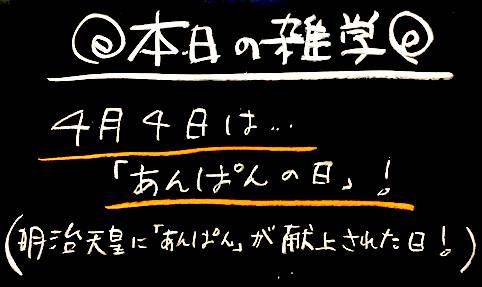 本日の雑学
4月4日は...
「あんぱんの日」!
(明治天皇に「あんぱん」が献上された日!)